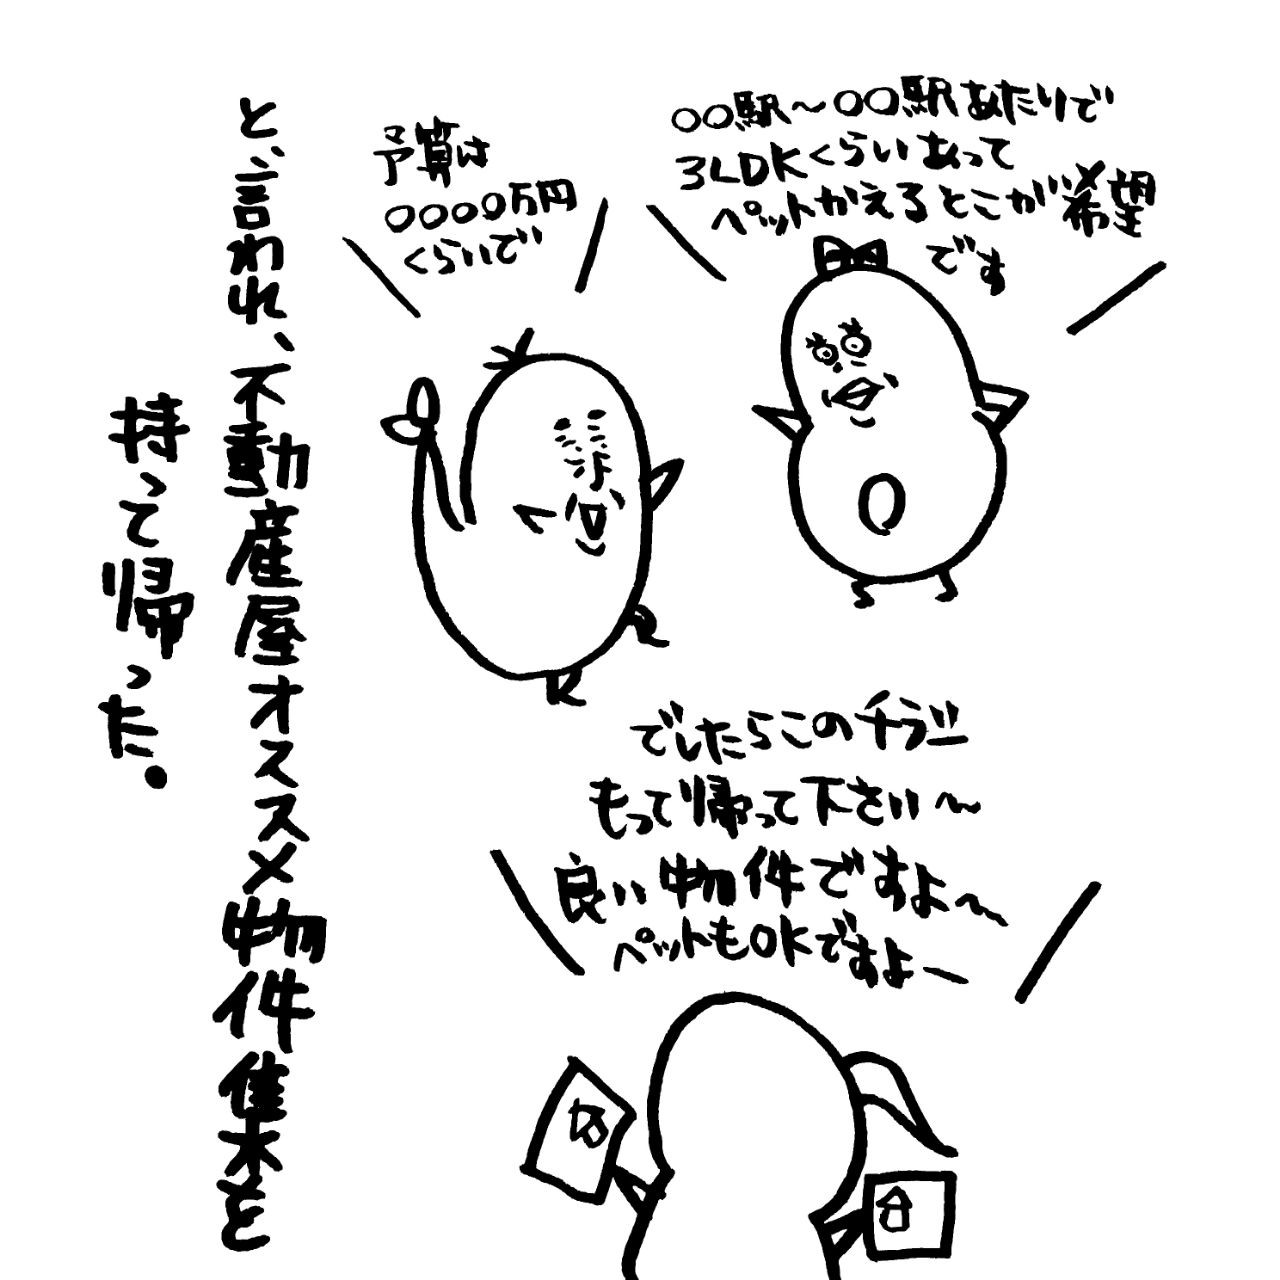 〇〇駅～〇〇駅あたりで
3LDKくらいあって
ペットがかえるとこが希望
です
予算は
〇〇〇〇万円
くらいで
でしたらこのチラシ
もって帰って下さい～
良い物件ですよ～
ペットもOKですよー
と、言われ、不動産屋オススメ物件集を
持って帰った。